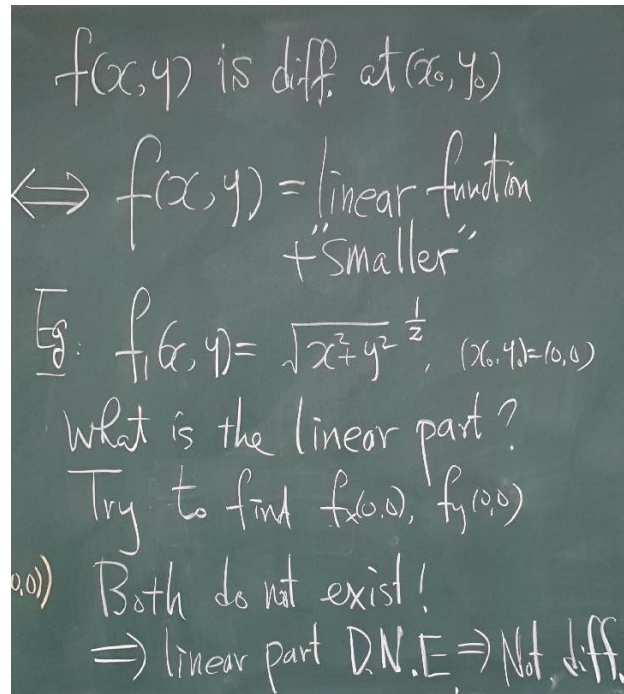 f(x,y) is diff. at (x₀,y₀)
⟺ f(x,y) = linear function
+ "smaller"
Eg: f₁(x,y) = √(x²+y²)^(1/2), (x₀,y₀)=(0,0)
What is the linear part?
Try to find fₓ(0,0), f_y(0,0)
0,0)) Both do not exist!
⇒ linear part D.N.E. ⇒ Not diff.